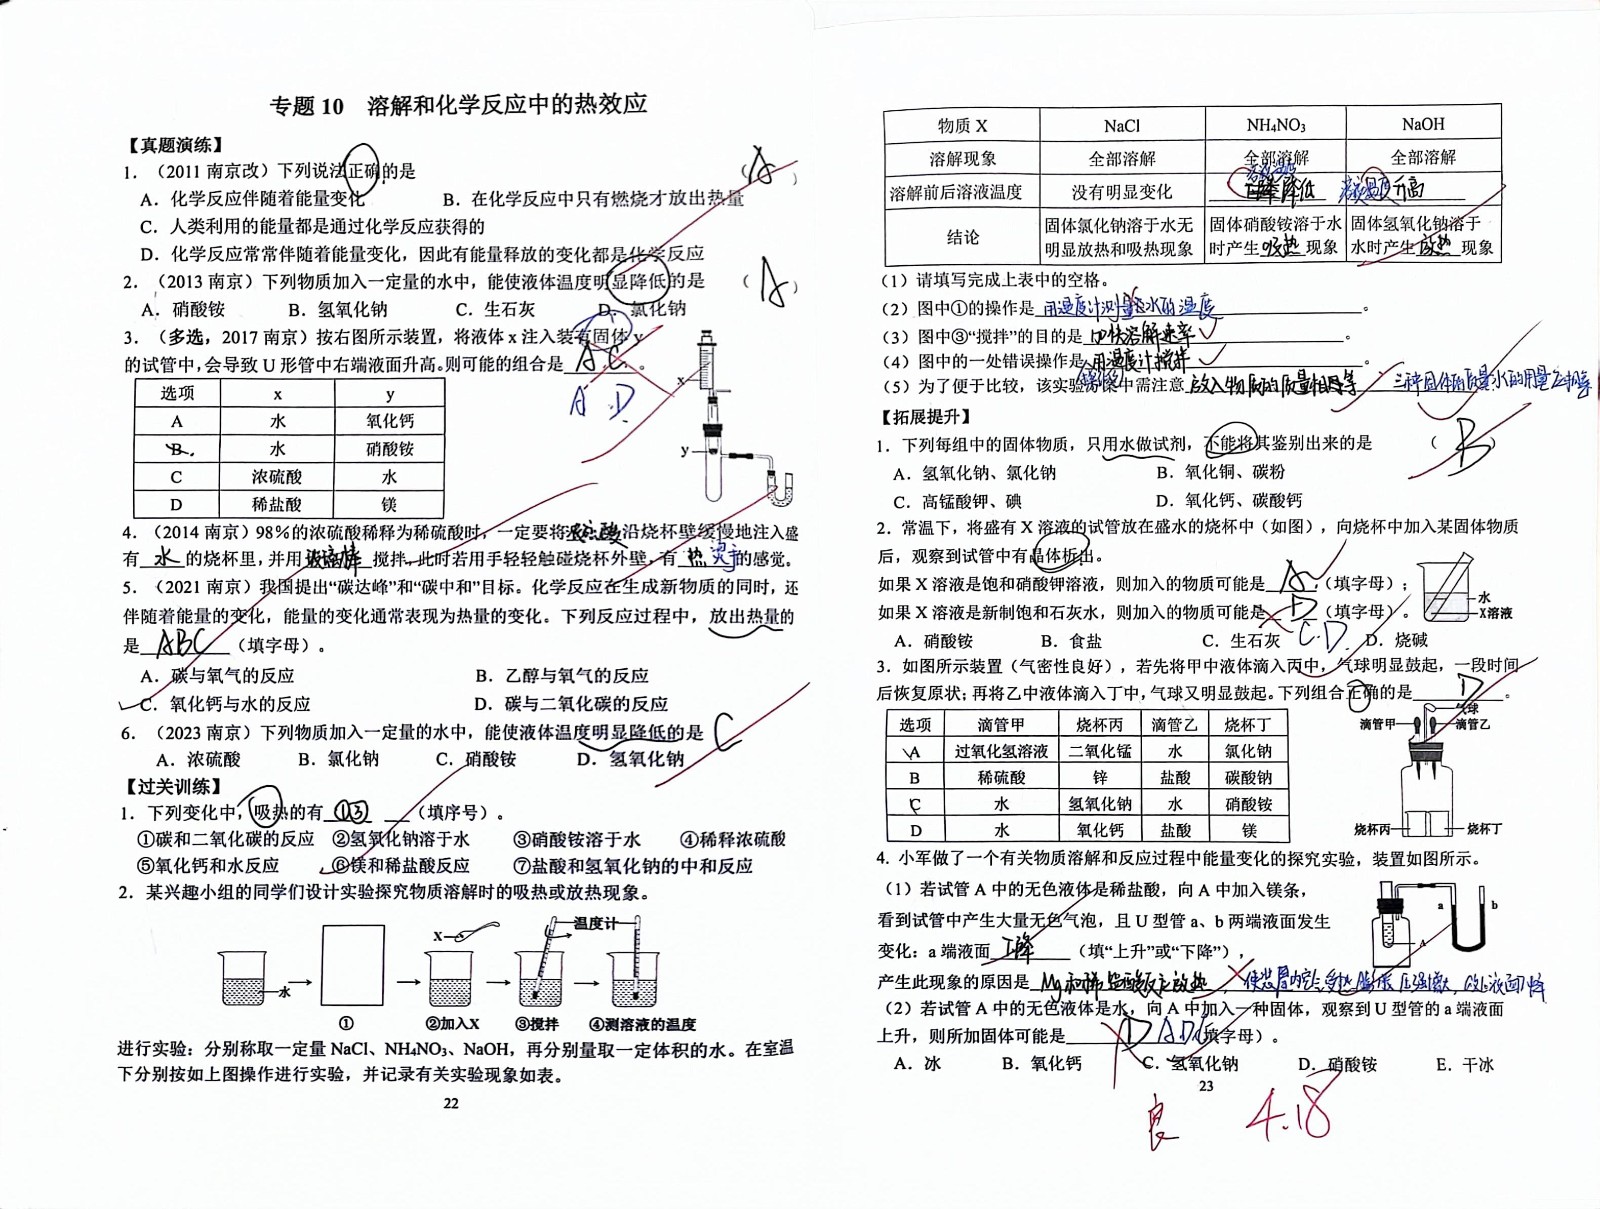 专题 10 溶解和化学反应中的热效应
【真题演练】
1．（2011 南京改）下列说法正确的是 （ A ）
A．化学反应伴随着能量变化 B．在化学反应中只有燃烧才放出热量
C．人类利用的能量都是通过化学反应获得的
D．化学反应常常伴随着能量变化，因此有能量释放的变化都是化学反应
2．（2013 南京）下列物质加入一定量的水中，能使液体温度明显降低的是 （ A ）
A．硝酸铵 B．氢氧化钠 C．生石灰 D．氯化钠
3．（多选，2017 南京）按右图所示装置，将液体 x 注入装有固体 y
的试管中，会导致 U 形管中右端液面升高。则可能的组合是 A C 。
A D
选项 x y
A 水 氧化钙
B 水 硝酸铵
C 浓硫酸 水
D 稀盐酸 镁
x
y
4．（2014 南京）98%的浓硫酸稀释为稀硫酸时，一定要将 浓硫酸 沿烧杯壁缓慢地注入盛
有 水 的烧杯里，并用 玻璃棒 搅拌，此时若用手轻轻触碰烧杯外壁，有 热 烫手 的感觉。
5．（2021 南京）我国提出“碳达峰”和“碳中和”目标。化学反应在生成新物质的同时，还
伴随着能量的变化，能量的变化通常表现为热量的变化。下列反应过程中，放出热量的
是 ABC （填字母）。
A．碳与氧气的反应 B．乙醇与氧气的反应
C．氧化钙与水的反应 D．碳与二氧化碳的反应
6．（2023 南京）下列物质加入一定量的水中，能使液体温度明显降低的是 C
A．浓硫酸 B．氯化钠 C．硝酸铵 D．氢氧化钠
【过关训练】
1．下列变化中，吸热的有 ①③ （填序号）。
①碳和二氧化碳的反应 ②氢氧化钠溶于水 ③硝酸铵溶于水 ④稀释浓硫酸
⑤氧化钙和水反应 ⑥镁和稀盐酸反应 ⑦盐酸和氢氧化钠的中和反应
2．某兴趣小组的同学们设计实验探究物质溶解时的吸热或放热现象。
水
X
温度计
① ②加入X ③搅拌 ④测溶液的温度
进行实验：分别称取一定量 NaCl、NH₄NO₃、NaOH，再分别量取一定体积的水。在室温
下分别按如上图操作进行实验，并记录有关实验现象如表。
22
物质 X NaCl NH₄NO₃ NaOH
溶解现象 全部溶解 全部溶解 全部溶解
溶解前后溶液温度 没有明显变化 降低 升高
结论 固体氯化钠溶于水无 固体硝酸铵溶于水 固体氢氧化钠溶于
明显放热和吸热现象 时产生 吸热 现象 水时产生 放热 现象
（1）请填写完成上表中的空格。
（2）图中①的操作是 用温度计测量水的温度 。
（3）图中③“搅拌”的目的是 加快溶解速率 。
（4）图中的一处错误操作是 用温度计搅拌 。
（5）为了便于比较，该实验方案中需注意 放入物质的质量相等 三种固体的质量水的用量相等
【拓展提升】
1．下列每组中的固体物质，只用水做试剂，不能将其鉴别出来的是 （ B ）
A．氢氧化钠、氯化钠 B．氧化铜、碳粉
C．高锰酸钾、碘 D．氧化钙、碳酸钙
2．常温下，将盛有 X 溶液的试管放在盛水的烧杯中（如图），向烧杯中加入某固体物质
后，观察到试管中有晶体析出。
如果 X 溶液是饱和硝酸钾溶液，则加入的物质可能是 A （填字母）；
如果 X 溶液是新制饱和石灰水，则加入的物质可能是 D （填字母）。
C.D
A．硝酸铵 B．食盐 C．生石灰 D．烧碱
水
X溶液
3．如图所示装置（气密性良好），若先将甲中液体滴入丙中，气球明显鼓起，一段时间
后恢复原状；再将乙中液体滴入丁中，气球又明显鼓起。下列组合正确的是 D 。
选项 滴管甲 烧杯丙 滴管乙 烧杯丁
A 过氧化氢溶液 二氧化锰 水 氯化钠
B 稀硫酸 锌 盐酸 碳酸钠
C 水 氢氧化钠 水 硝酸铵
D 水 氧化钙 盐酸 镁
气球
滴管甲 滴管乙
烧杯丙 烧杯丁
4．小军做了一个有关物质溶解和反应过程中能量变化的探究实验，装置如图所示。
（1）若试管 A 中的无色液体是稀盐酸，向 A 中加入镁条，
看到试管中产生大量无色气泡，且 U 型管 a、b 两端液面发生
变化：a 端液面 下降 （填“上升”或“下降”），
a b
A
产生此现象的原因是 Mg和稀盐酸反应放热 ，使装置内空气受热膨胀，压强增大，a处液面下降
（2）若试管 A 中的无色液体是水，向 A 中加入一种固体，观察到 U 型管的 a 端液面
上升，则所加固体可能是 D ADE （填字母）。
A．冰 B．氧化钙 C．氢氧化钠 D．硝酸铵 E．干冰
23
良 4.18